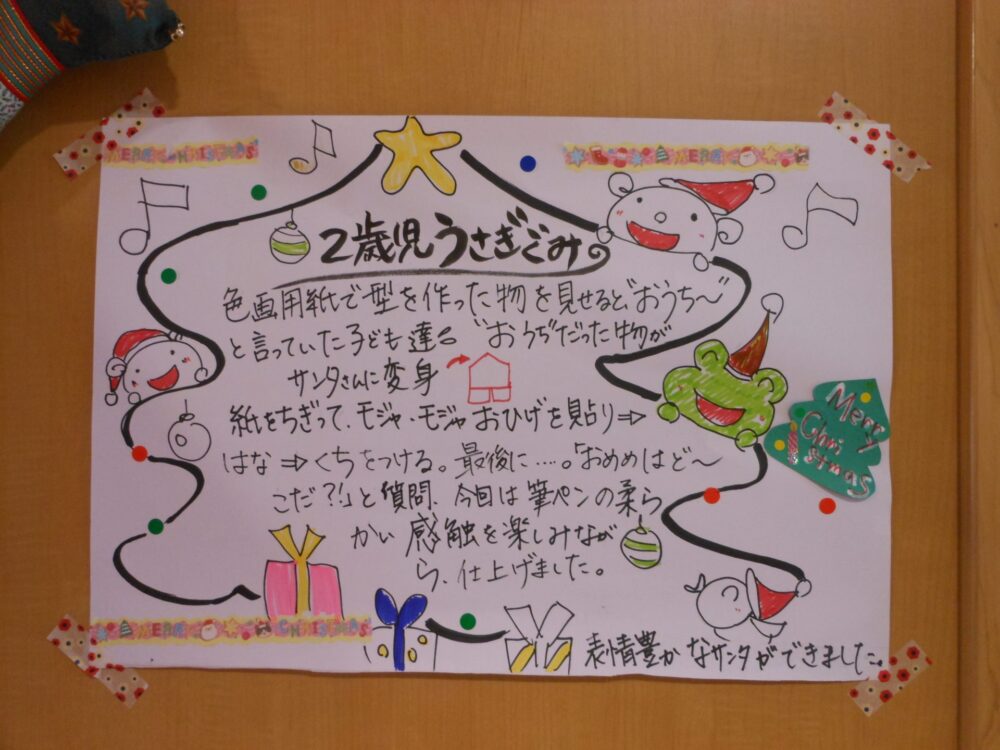 MERRY CHRISTMAS
MERRY
2歳児うさぎぐみ。
色画用紙で型を作った物を見せると、"おうち〜"
と言っていた子ども達。"おうち"だった物が
サンタさんに変身
紙をちぎって、モジャ・モジャおひげを貼り⇒
はな⇒くちをつける。最後に….。「おめめはど〜
こだ?!」と質問、今回は筆ペンの柔ら
かい感触を楽しみなが
ら、仕上げました。
Merry
Christmas
MERRY CHRISTMAS
表情豊かなサンタができました。